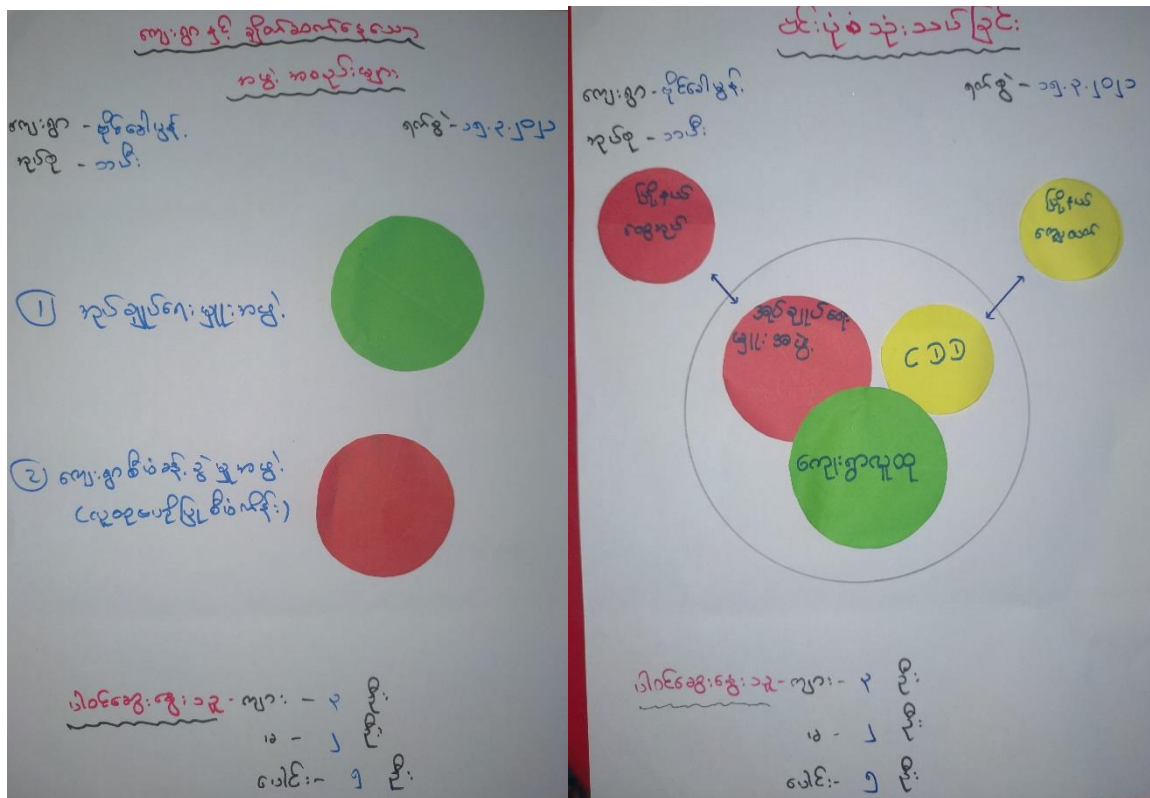 ကျေးရွာ နှင့် ချိတ်ဆက်နေသော
အဖွဲ့ အစည်းများ
ကျေးရွာ -
ရက်စွဲ - ၁၅.၃.၂၀၂၁
အုပ်စု - ဘဖီး
① အုပ်ချုပ်ရေးမှူးအဖွဲ့
② ကျေးရွာစီမံခန့်ခွဲမှုအဖွဲ့
(လူထုဗဟိုပြုစီမံကိန်း)
ပါဝင်ဆွေးနွေးသူ - ကျား - ၃ ဦး
မ - ၂ ဦး
ပေါင်း - ၅ ဦး
ဗင်းပုံစံသုံးသပ်ခြင်း
ကျေးရွာ -
ရက်စွဲ - ၁၅.၃.၂၀၂၁
အုပ်စု - ဘဖီး
မြို့နယ်
ထွေအုပ်
မြို့နယ်
ကျေးလက်
အုပ်ချုပ်ရေး
မှူးအဖွဲ့
CDD
ကျေးရွာလူထု
ပါဝင်ဆွေးနွေးသူ - ကျား - ၃ ဦး
မ - ၂ ဦး
ပေါင်း - ၅ ဦး